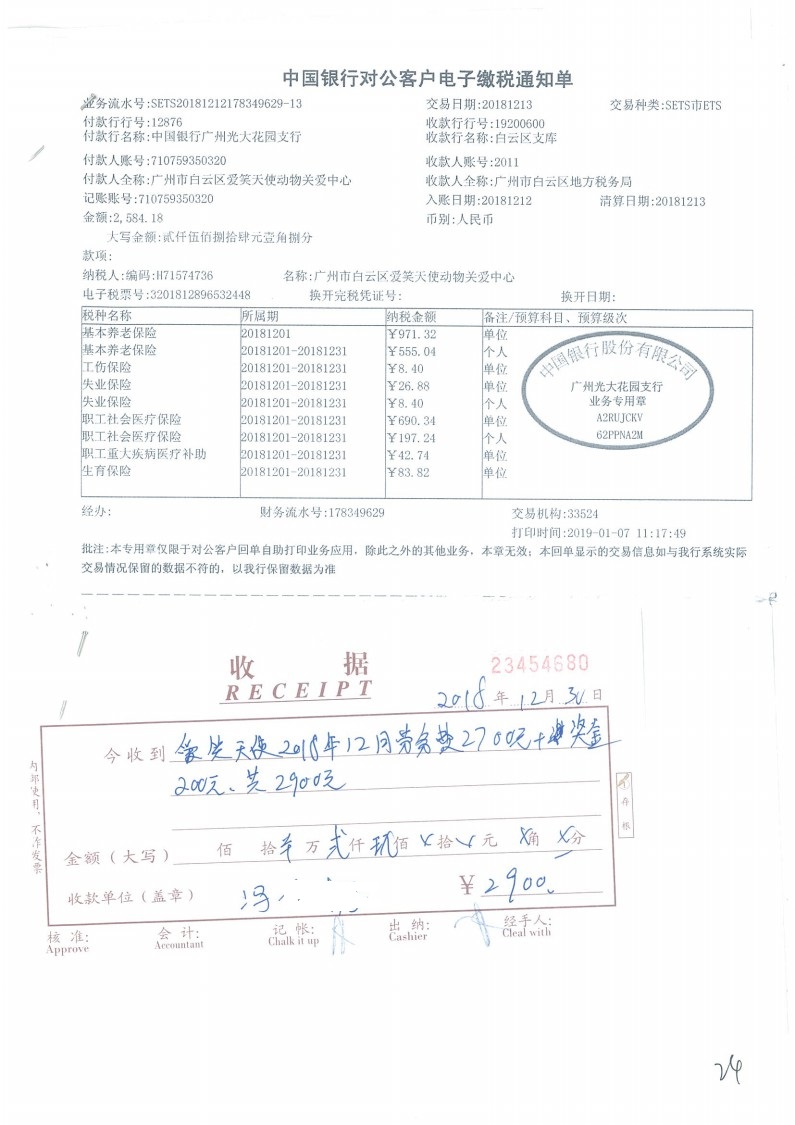 中国银行对公客户电子缴税通知单
业务流水号:SETS20181212178349629-13 交易日期:20181213 交易种类:SETS市ETS
付款行行号:12876 收款行行号:19200600
付款行名称:中国银行广州光大花园支行 收款行名称:白云区支库
付款人账号:710759350320 收款人账号:2011
付款人全称:广州市白云区爱笑天使动物关爱中心 收款人全称:广州市白云区地方税务局
记账账号:710759350320 入账日期:20181212 清算日期:20181213
金额:2,584.18 币别:人民币
大写金额:贰仟伍佰捌拾肆元壹角捌分
款项:
纳税人:编码:H71574736 名称:广州市白云区爱笑天使动物关爱中心
电子税票号:3201812896532448 换开完税凭证号: 换开日期:
税种名称 所属期 纳税金额 备注/预算科目、预算级次
基本养老保险 20181201 ¥971.32 单位
基本养老保险 20181201-20181231 ¥555.04 个人
工伤保险 20181201-20181231 ¥8.40 单位
失业保险 20181201-20181231 ¥26.88 单位
失业保险 20181201-20181231 ¥8.40 个人
职工社会医疗保险 20181201-20181231 ¥690.34 单位
职工社会医疗保险 20181201-20181231 ¥197.24 个人
职工重大疾病医疗补助 20181201-20181231 ¥42.74 单位
生育保险 20181201-20181231 ¥83.82 单位
中国银行股份有限公司
广州光大花园支行
业务专用章
A2RUJCKV
62PPNA2M
经办: 财务流水号:178349629 交易机构:33524
打印时间:2019-01-07 11:17:49
批注:本专用章仅限于对公客户回单自助打印业务应用，除此之外的其他业务，本章无效；本回单显示的交易信息如与我行系统实际
交易情况保留的数据不符的，以我行保留数据为准
收 据 23454680
RECEIPT
2018年12月30日
今收到 爱笑天使2018年12月劳务费2700元+奖金
200元、共2900元
金额（大写） 佰 拾 万 贰仟玖佰 拾 元 角 分
收款单位（盖章） 冯 ¥2900
内部使用，不作发票
①存根
核 准: 会 计: 记 帐: 出 纳: 经手人:
Approve Accountant Chalk it up Cashier Cleal with
24